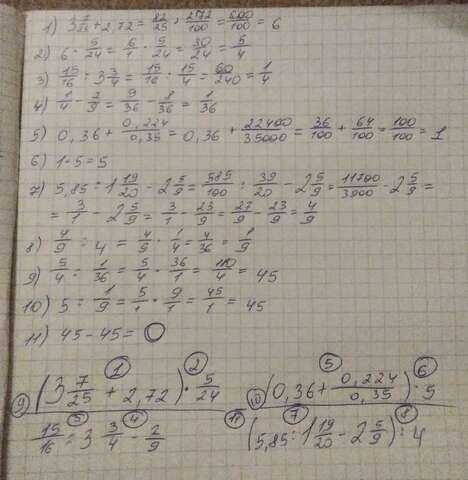 1) 3 7/25 + 2,72 = 82/25 + 272/100 = 600/100 = 6
2) 6 · 5/24 = 6/1 · 5/24 = 30/24 = 5/4
3) 15/16 : 3 3/4 = 15/16 : 15/4 = 60/240 = 1/4
4) 1/4 - 2/9 = 9/36 - 8/36 = 1/36
5) 0,36 + 0,224/0,35 = 0,36 + 22400/35000 = 36/100 + 64/100 = 100/100 = 1
6) 1·5 = 5
7) 5,85 : 1 19/20 - 2 5/9 = 585/100 : 39/20 - 2 5/9 = 11700/3900 - 2 5/9 =
= 3/1 - 2 5/9 = 3/1 - 23/9 = 27/9 - 23/9 = 4/9
8) 4/9 : 4 = 4/9 · 1/4 = 4/36 = 1/9
9) 5/4 : 1/36 = 5/4 · 36/1 = 180/4 = 45
10) 5 : 1/9 = 5/1 · 9/1 = 45/1 = 45
11) 45 - 45 = 0
1 2 5 6
(3 7/25 + 2,72) · 5/24 (0,36 + 0,224/0,35) · 5
9 3 4 11 10 7 8
15/16 : 3 3/4 - 2/9 (5,85 : 1 19/20 - 2 5/9) : 4